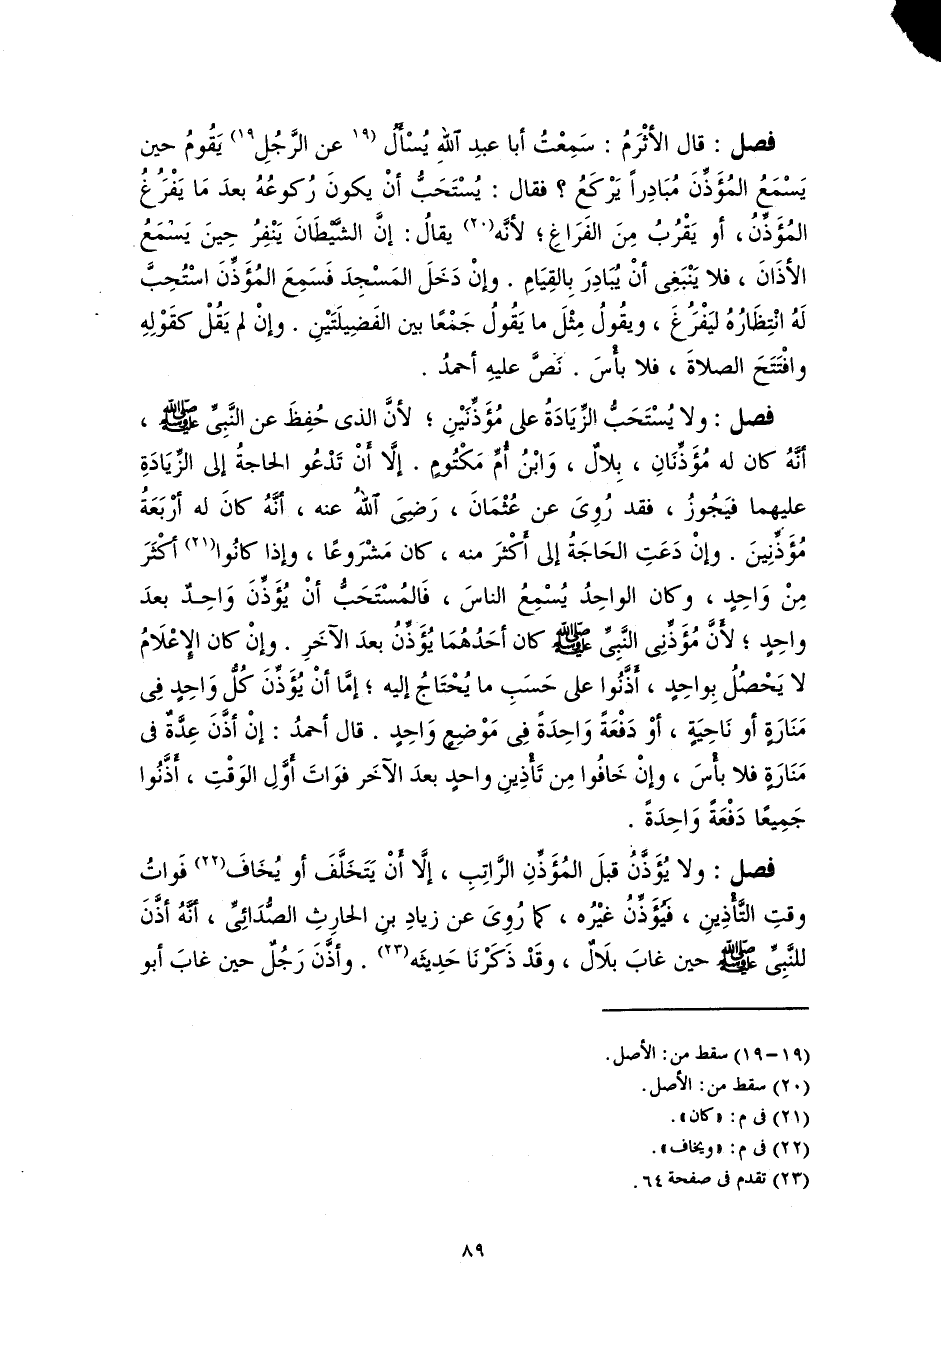 فصل : قال الأثْرَمُ : سَمِعْتُ أبا عبدِ ٱللهِ يُسْأَلُ (١٩ عن الرَّجُلِ١٩) يَقُومُ حين
يَسْمَعُ المُؤَذِّنَ مُبَادِراً يَرْكَعُ ؟ فقال : يُسْتَحَبُّ أنْ يكونَ رُكوعُهُ بعدَ مَا يَفْرُغُ
المُؤَذِّنُ ، أو يَقْرُبُ مِنَ الفَرَاغِ ؛ لأنَّه(٢٠) يقالُ : إنَّ الشَّيْطَانَ يَنْفِرُ حِينَ يَسْمَعُ
الأذَانَ ، فلا يَنْبَغِى أنْ يُبَادِرَ بِالقِيَامِ . وإنْ دَخَلَ المَسْجِدَ فَسَمِعَ المُؤَذِّنَ اسْتُحِبَّ
لَهُ انْتِظَارُهُ لِيَفْرُغَ ، ويقُولُ مِثْلَ ما يَقُولُ جَمْعًا بين الفَضِيلَتَيْنِ . وإنْ لم يَقُلْ كقَوْلِهِ
وافْتَتَحَ الصلاةَ ، فلا بأْسَ . نَصَّ عليهِ أحمدُ .
فصل : ولا يُسْتَحَبُّ الزِّيَادَةُ على مُؤَذِّنَيْنِ ؛ لأنَّ الذى حُفِظَ عن النَّبِىِّ ﷺ ،
أنَّهُ كان له مُؤَذِّنَانِ ، بِلالٌ ، وَابْنُ أُمِّ مَكْتُومٍ . إلَّا أَنْ تَدْعُو الحاجةُ إلى الزِّيَادَةِ
عليهما فيَجُوزُ ، فقد رُوِىَ عن عُثْمَانَ ، رَضِىَ ٱللهُ عنه ، أنَّهُ كانَ له أرْبَعَةُ
مُؤَذِّنِينَ . وإنْ دَعَتِ الحَاجَةُ إلى أَكْثَرَ منه ، كان مَشْرُوعًا ، وإذا كانُوا(٢١) أكْثَرَ
مِنْ وَاحِدٍ ، وكان الواحِدُ يُسْمِعُ الناسَ ، فَالمُسْتَحَبُّ أنْ يُؤَذِّنَ وَاحِدٌ بعدَ
واحِدٍ ؛ لأَنَّ مُؤَذِّنِى النَّبِىِّ ﷺ كان أحَدُهُمَا يُؤَذِّنُ بعدَ الآخَرِ . وإنْ كان الإعْلَامُ
لا يَحْصُلُ بِواحِدٍ ، أَذَّنُوا على حَسَبِ ما يُحْتَاجُ إليه ؛ إمَّا أنْ يُؤَذِّنَ كُلُّ وَاحِدٍ فِى
مَنَارَةٍ أو نَاحِيَةٍ ، أوْ دَفْعَةً وَاحِدَةً فِى مَوْضِعٍ وَاحِدٍ . قال أحمدُ : إنْ أذَّنَ عِدَّةٌ فى
مَنَارَةٍ فلا بأْسَ ، وإنْ خَافُوا مِن تَأْذِينِ واحدٍ بعدَ الآخَر فوَاتَ أَوَّلِ الوَقْتِ ، أَذَّنُوا
جَمِيعًا دَفْعَةً وَاحِدَةً .
فصل : ولا يُؤَذَّنُ قبلَ المُؤَذِّنِ الرَّاتِبِ ، إلَّا أَنْ يَتَخَلَّفَ أو يُخَافَ(٢٢) فَواتُ
وقتِ التَّأْذِينِ ، فَيُؤَذِّنُ غيْرُه ، كما رُوِىَ عن زيادِ بنِ الحارِثِ الصُّدَائِىِّ ، أنَّهُ أذَّنَ
للنَّبِىِّ ﷺ حين غابَ بلَالٌ ، وقَدْ ذَكَرْنَا حَدِيثَه(٢٣) . وأذَّنَ رَجُلٌ حين غابَ أبو
(١٩-١٩) سقط من: الأصل.
(٢٠) سقط من: الأصل.
(٢١) فى م: «كان».
(٢٢) فى م: «ويخاف».
(٢٣) تقدم فى صفحة ٦٤.
٨٩